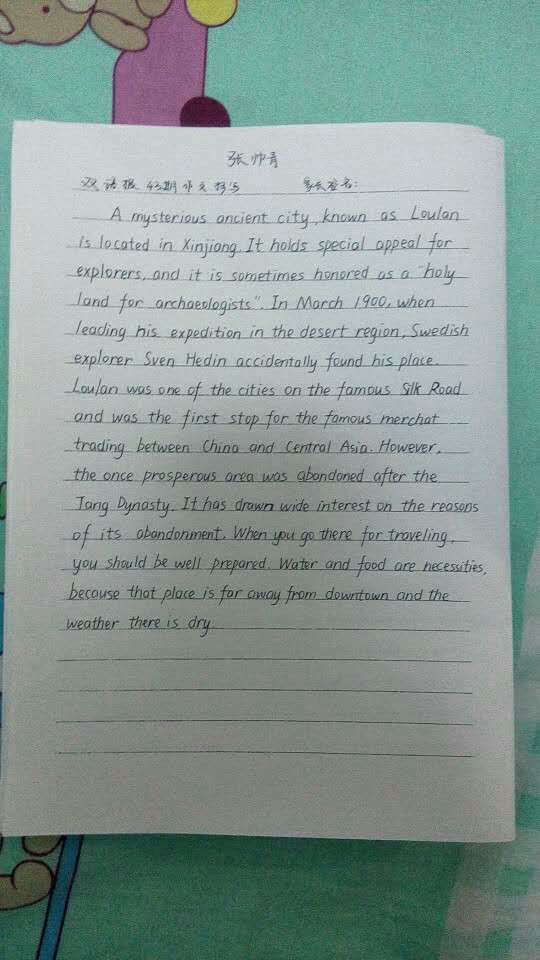 张帅青
双语报 43期作文抄写 家长签名:
A mysterious ancient city, known as Loulan
is located in Xinjiang. It holds special appeal for
explorers, and it is sometimes honored as a "holy
land for archaeologists". In March 1900, when
leading his expedition in the desert region, Swedish
explorer Sven Hedin accidentally found his place.
Loulan was one of the cities on the famous Silk Road
and was the first stop for the famous merchat
trading between China and Central Asia. However,
the once prosperous area was abandoned after the
Tang Dynasty. It has drawn wide interest on the reasons
of its abandonment. When you go there for traveling,
you should be well prepared. Water and food are necessities,
because that place is far away from downtown and the
weather there is dry.